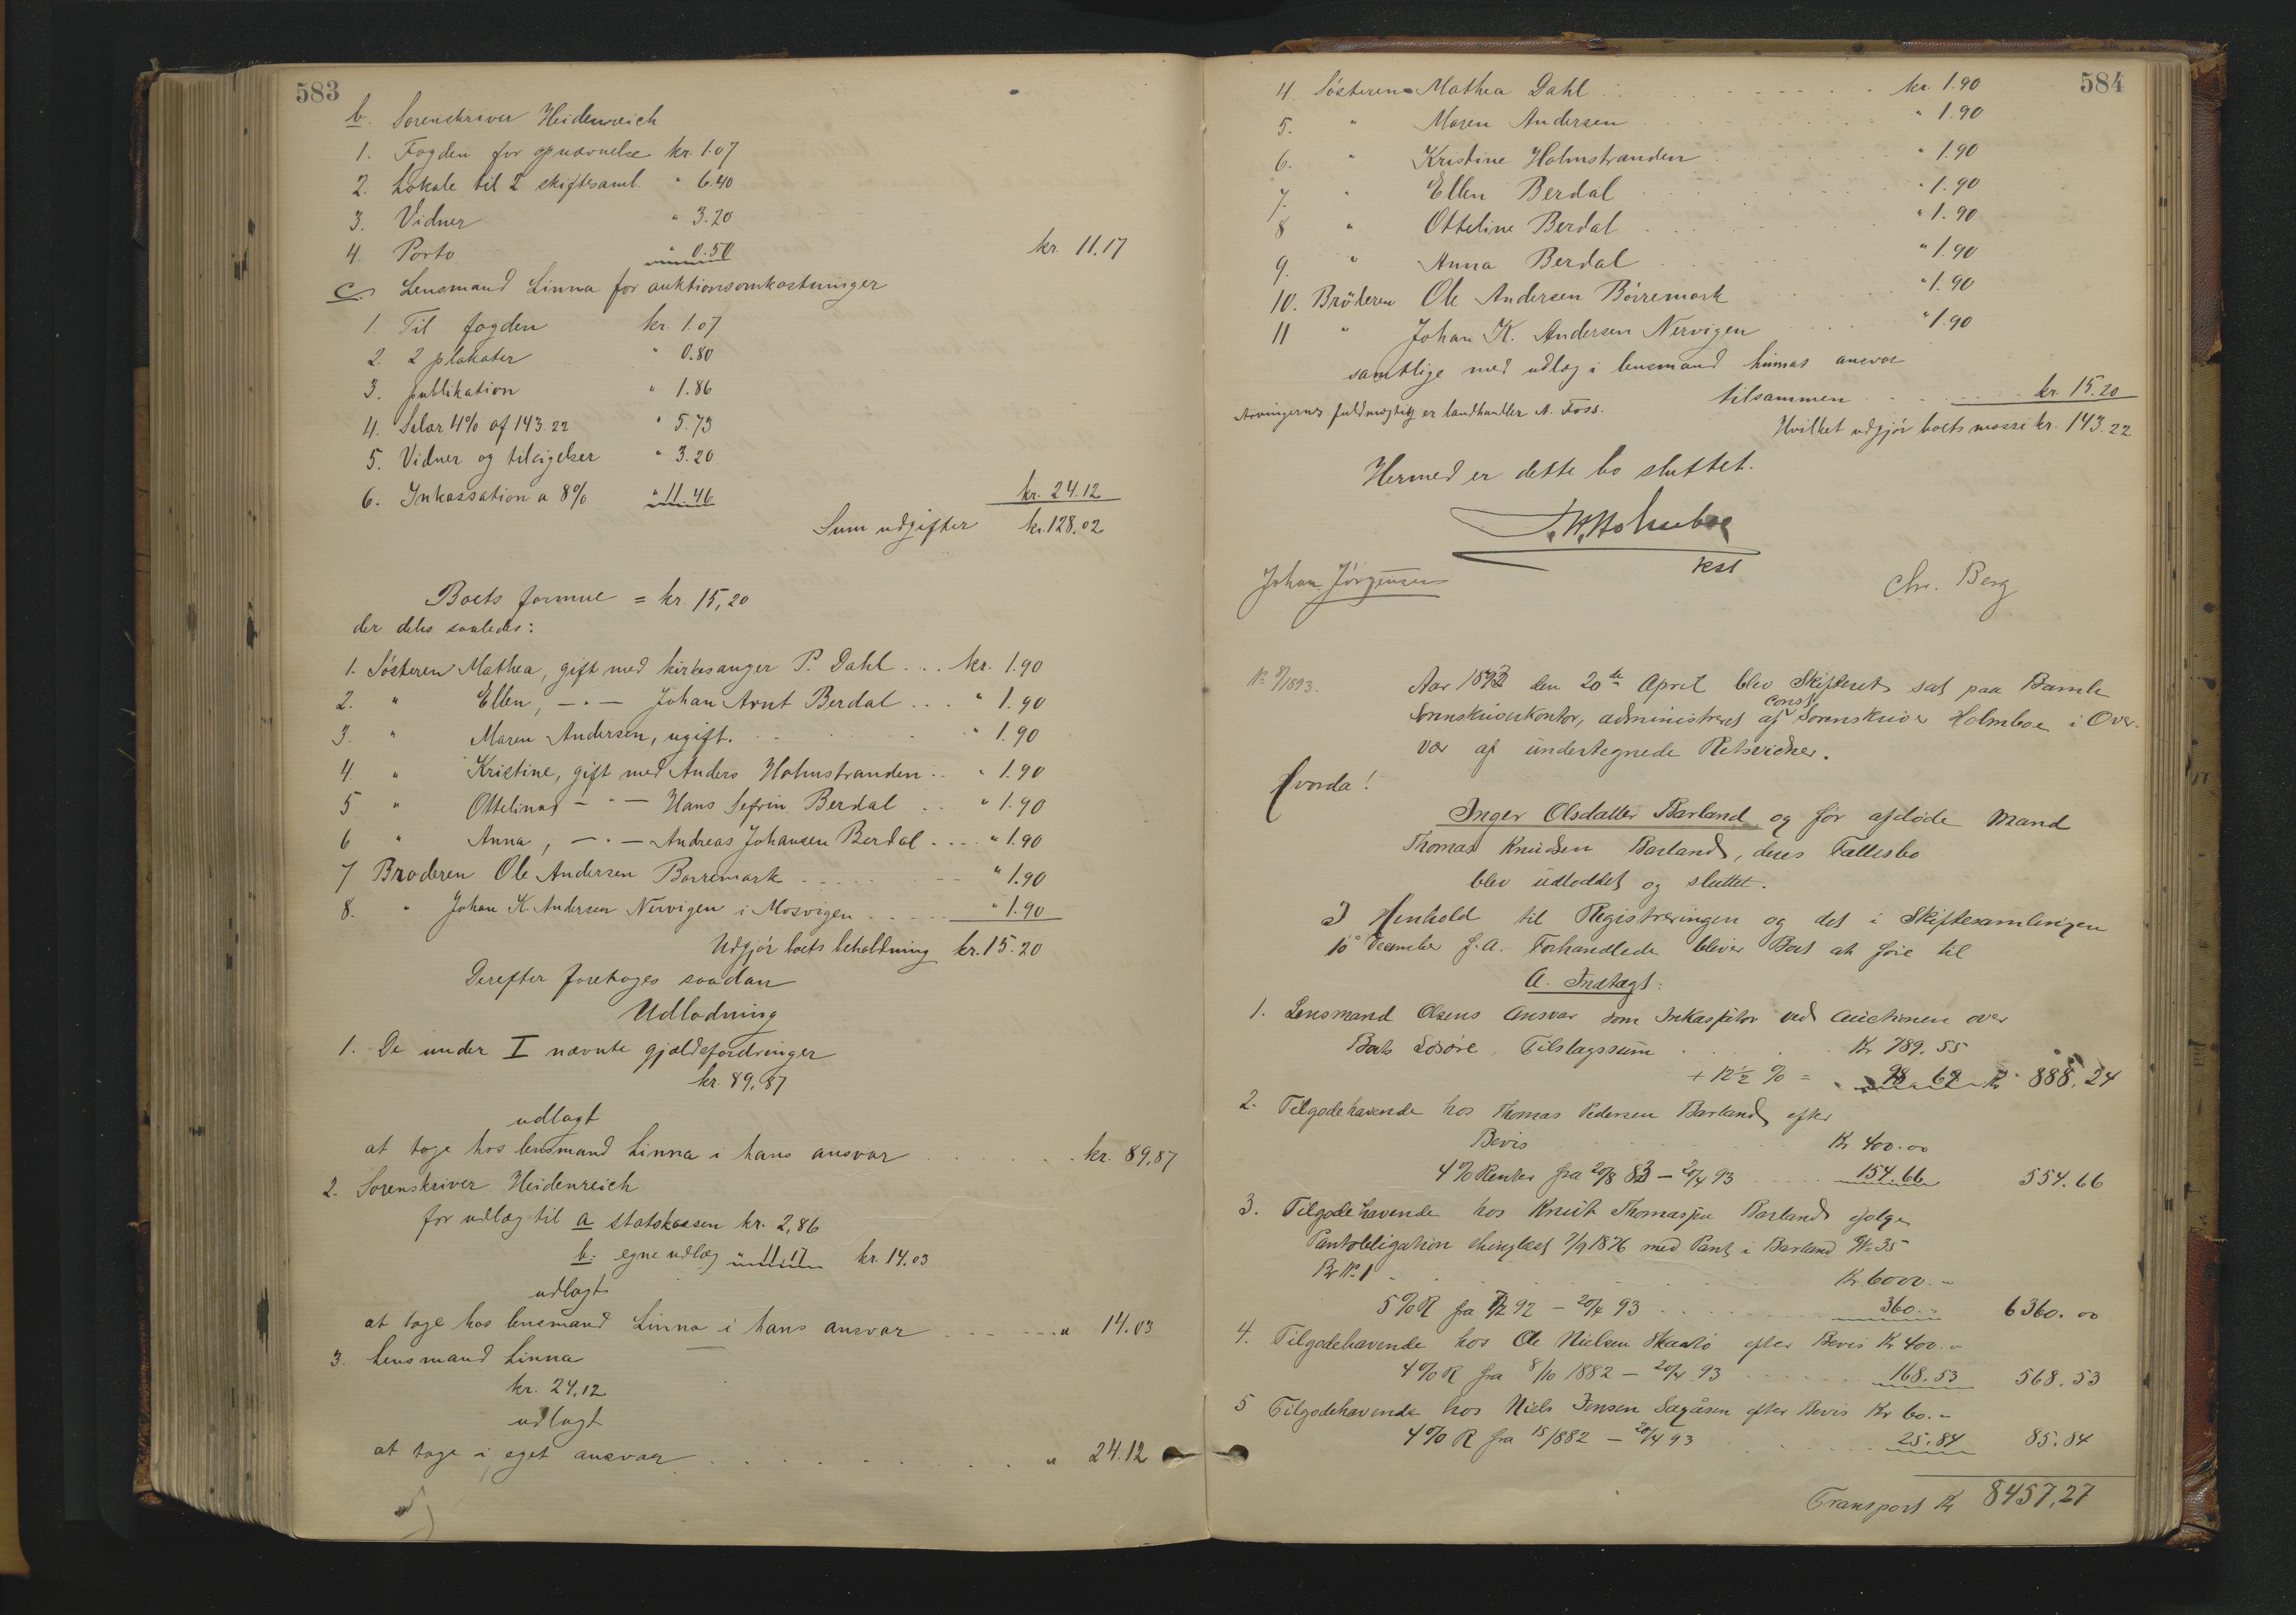 583
b. Sorenskriver Heidenreich
1. Fogden for opnævnelse kr. 1.07
2. Lokale til 2 skiftesaml. " 6.40
3. Vidner " 3.20
4. Porto " 0.50 kr. 11.17
c. Lensmand Linna for auktionsomkostninger
1. Til fogden kr. 1.07
2. 2 plakater " 0.80
3. publikation " 1.86
4. Salær 4% af 143.22 " 5.73
5. Vidner og tilsigelser " 3.20
6. Inkassation a 8% " 11.46 kr. 24.12
Sum udgifter kr. 128.02
Boets formue = kr. 15,20
der deles saaledes:
1. Søsteren Mathea, gift med kirkesanger P. Dahl ... kr. 1.90
2. " Ellen, — " — Johan Arnt Berdal ... " 1.90
3. " Maren Andersen, ugift. " 1.90
4. " Kristine, gift med Anders Holmstranden .. " 1.90
5 " Ottelina, — " — Hans Sefrin Berdal ... " 1.90
6 " Anna, — " — Andreas Johansen Berdal .... " 1.90
7 Broderen Ole Andersen Borremark " 1.90
8. " Johan K. Andersen Nervigen i Mosvigen " 1.90
Udgjør boets beholdning kr. 15.20
Derefter foretoges saadan
Udlodning
1. De under I nævnte gjældsfordringer
kr. 89,87
udlagt
at tage hos lensmand Linna i hans ansvar kr. 89,87
2. Sorenskriver Heidenreich
for udlæg til a statskassen kr. 2,86
b. egne udlæg " 11.17 kr. 14.03
udlagt
at tage hos lensmand Linna i hans ansvar " 14.03
3. Lensmand Linna
kr. 24,12
udlagt
at tage i eget ansvar " 24.12
584
4. Søsteren Mathea Dahl kr. 1.90
5. " Maren Andersen " 1.90
6. " Kristine Holmstranden " 1.90
7. " Ellen Berdal " 1.90
8 " Otteline Berdal " 1.90
9. " Anna Berdal " 1.90
10. Brøderen Ole Andersen Börremark " 1.90
11 " Johan K. Andersen Nervigen " 1.90
samtlige med udlæg i lensmand Linnas ansvar
tilsammen kr. 15.20
Arvingernes fuldmægtig er landhandler N. Foss.
Hvilket udgjør boets masse kr. 143.22
Hermed er dette bo sluttet.
Holmboe
kst
Johan Jörgensen
Chr. Berg
No 8/1893.
Aar 1893 den 20de April blev Skifteret sat paa Bamle
Sorenskriverkontor, administreret af const. Sorenskriver Holmboe i Over-
vær af undertegnede Retsvidner.
Hvorda!
Inger Olsdatter Barland og før afdøde Mand
Thomas Knudsen Barland, deres Fællesbo
blev udloddet og sluttet.
I Henhold til Registreringen og det i Skiftesamlingen
10 December f.A. Forhandlede bliver Boet at føre til
A. Indtægt:
1. Lensmand Olsens Ansvar som Inkassator ved Auctionen over
Boets Løsøre, Tilslagssum Kr 789.55
+ 12½ % = 98.69 Kr 888.24
2. Tilgodehavende hos Thomas Pedersen Barland efter
Bevis Kr 400.00
4% Renter fra 20/8 83 — 20/4 93 154.66 554.66
3. Tilgodehavende hos Knut Thomassen Barland ifølge
Pantobligation thinglæst 7/9 1876 med Pant i Barland GNo 35
Br No 1 Kr. 6000.-
5% R fra 92 — 20/4 93 360.- 6360.00
4. Tilgodehavende hos Ole Nielsen efter Bevis Kr 400.-
4% R fra 8/10 1882 — 20/4 93 168.53 568.53
5 Tilgodehavende hos Niels Jensen Sagåsen efter Bevis Kr 60.-
4% R fra 1882 — 20/4 93 25.84 85.84
Transport Kr 8457,27